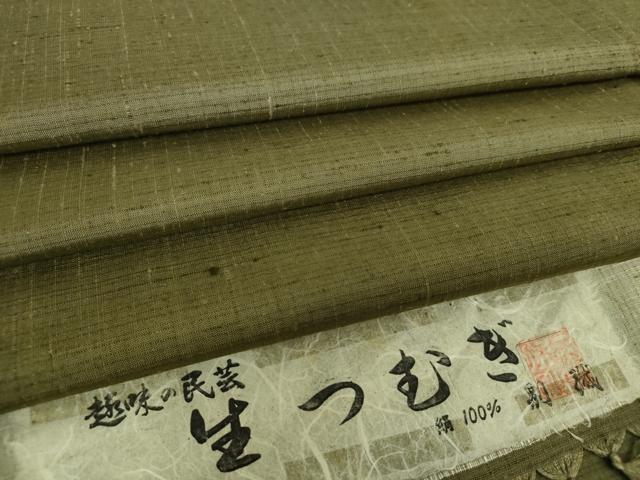 趣味の民芸
生つむぎ
絹 100%